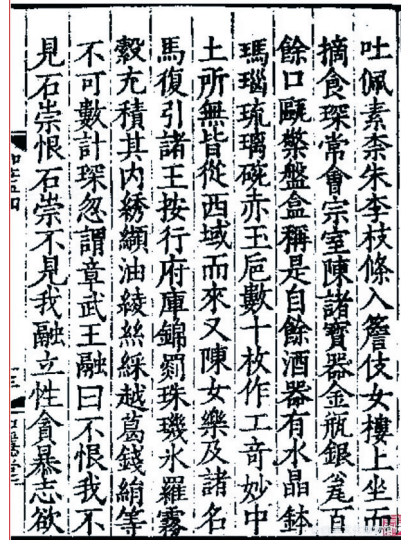 吐佩素柰朱李枝條入簷伎女樓上坐而
摘食琛常會宗室陳諸寶器金瓶銀瓮百
餘口甌檠盤盒稱是自餘酒器有水晶鉢
瑪瑙琉璃碗赤玉巵數十枚作工奇妙中
土所無皆從西域而來又陳女樂及諸名
馬復引諸王按行府庫錦罽珠璣氷羅霧
縠充積其內綉纈油綾絲綵越葛錢絹等
不可數計琛忽謂章武王融曰不恨我不
見石崇恨石崇不見我融立性貪暴志欲